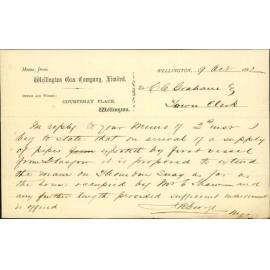 Memo. from
Wellington Gas Company, Limited.
OFFICE AND WORKS:
COURTENAY PLACE,
Wellington.
WELLINGTON, 9 Oct 188
To C. A. Graham Eq
Town Clerk
In reply to your Memo of 2nd inst I
beg to state that on arrival of a supply
of pipes expected by first vessel
from Glasgow it is proposed to extend
the main on Thorndon Quay as far as
the house occupied by Mr E Shaw and
any further length provided sufficient inducement
is offered